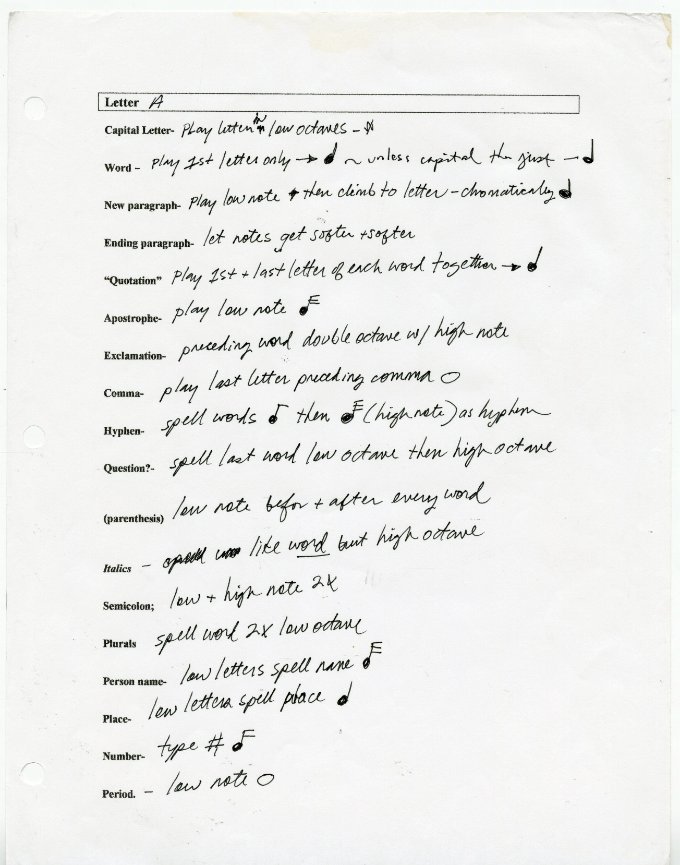 Letter A
Capital Letter- Play letter in low octaves -
Word - Play 1st letter only → ~ unless capital then just -
New paragraph- Play low note + then climb to letter - chromatically
Ending paragraph- let notes get softer + softer
"Quotation" Play 1st + last letter of each word together →
Apostrophe- play low note
Exclamation- preceding word double octave w/ high note
Comma- play last letter preceding comma
Hyphen- spell words then (high note) as hyphen
Question?- spell last word low octave then high octave
(parenthesis) low note befor + after every word
Italics - like word but high octave
Semicolon; low + high note 2X
Plurals spell word 2X low octave
Person name- low letters spell name
Place- low letters spell place
Number- type #
Period. - low note